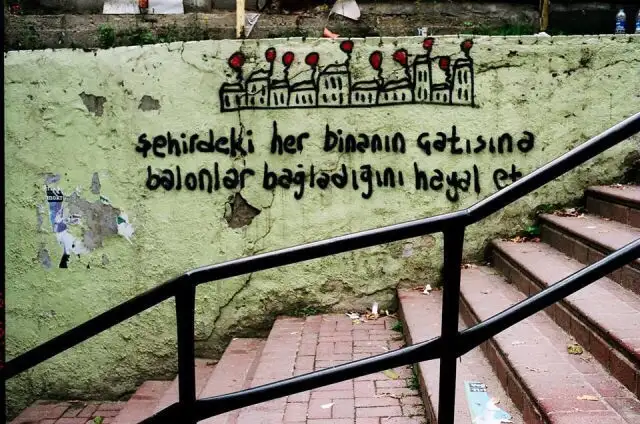 şehirdeki her binanın çatısına
balonlar bağladığını hayal et